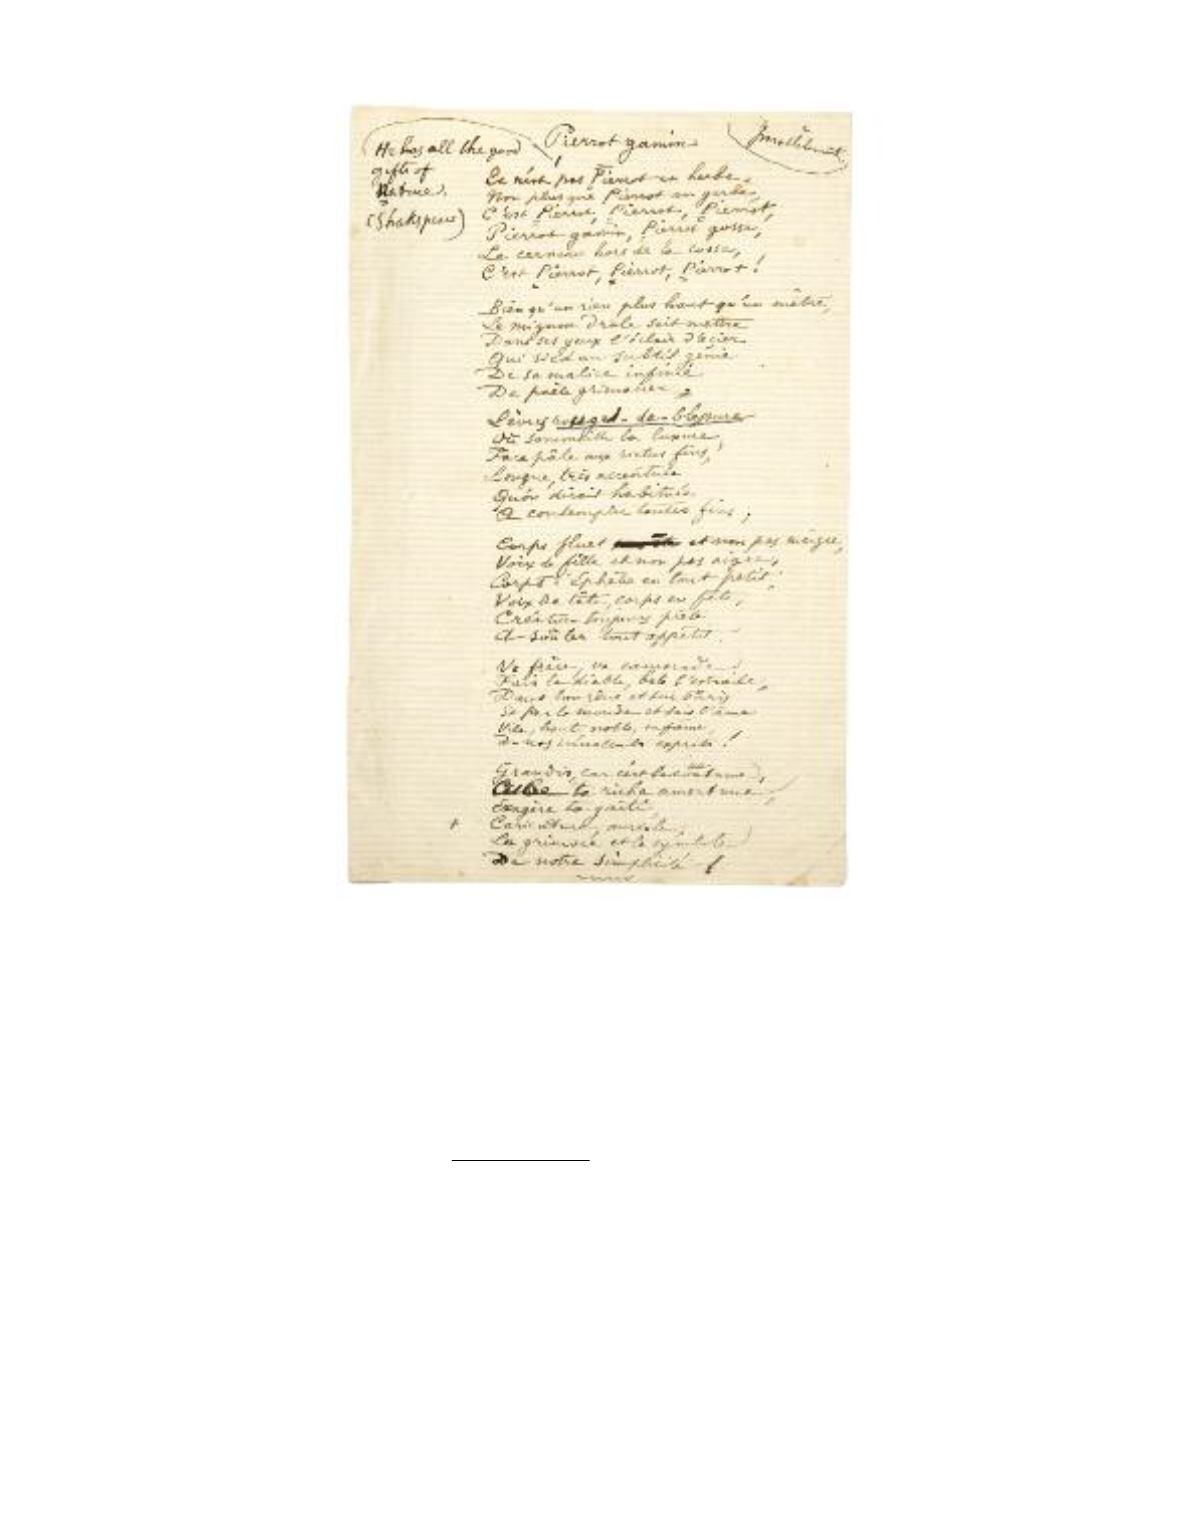 He has all the good
gifts of
Nature.
(Shakspere)
Pierrot gamin
Ce n'est pas Pierrot en herbe
Non plus que Pierrot en gerbe,
C'est Pierrot, Pierrot, Pierrot,
Pierrot gamin, Pierrot gosse,
Le cerneau hors de la cosse,
C'est Pierrot, Pierrot, Pierrot !
Bien qu'un rien plus haut qu'un mètre,
Le mignon drôle sait mettre
Dans ses yeux l'éclair d'acier
Qui sied au subtil génie
De sa malice infinie
De poète grimacier,
Lèvres rouges-de-blessure
Où sommeille la luxure,
Face pâle aux rictus fins,
Longue, très accentuée
Qu'on dirait habituée
A contempler toutes fins,
Corps fluet et non pas maigre,
Voix de fille et non pas aigre,
Corps d'éphèbe en tout petit,
Voix de tête, corps en fête,
Créature toujours prête
A soûler tout appétit.
Va frère, va camarade,
Fais le diable, bats l'estrade,
Dans ton rêve et sur Paris
Et par le monde et sois l'âme
Vile, haute, noble, infâme
De nos innocents esprits !
Grandis, car c'est la coutume,
Cube ta riche amertume,
Exagère ta gaîté
Caricature, auréole,
La grimace et le symbole
De notre simplicité !